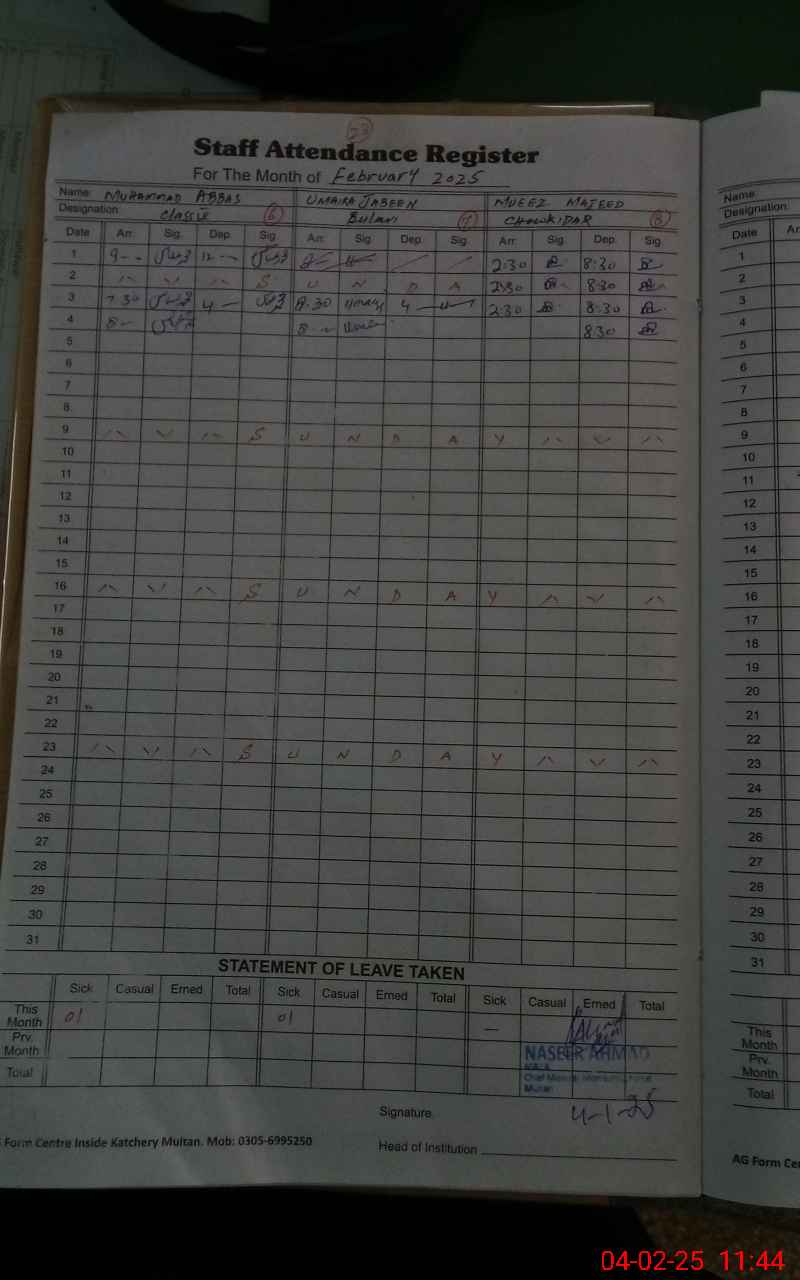 23
Staff Attendance Register
For The Month of February 2025
Name: MUHAMMAD ABBAS UMAIRA JABEEN MUEEZ MAJEED
Designation: 6 7 CHOWKIDAR 8
Date Arr. Sig. Dep. Sig. Arr. Sig. Dep. Sig. Arr. Sig. Dep. Sig.
1 9 - - 12 - 2:30 8:30
2 S U N D A 2:30 8:30
3 7.30 4 - 8.30 4 - 2:30 8:30
4 8 - 8 - 8:30
5
6
7
8
9 S U N D A Y
10
11
12
13
14
15
16 S U N D A Y
17
18
19
20
21
22
23 S U N D A Y
24
25
26
27
28
29
30
31
STATEMENT OF LEAVE TAKEN
Sick Casual Erned Total Sick Casual Erned Total Sick Casual Erned Total
This Month 01 01 —
Prv. Month
Total
NASEER AHMAD
Multan
4-1-25
Signature
Form Centre Inside Katchery Multan. Mob: 0305-6995250
Head of Institution
Name:
Designation:
Date
1
2
3
4
5
6
7
8
9
10
11
12
13
14
15
16
17
18
19
20
21
22
23
24
25
26
27
28
29
30
31
This Month
Prv. Month
Total
AG Form Ce
04-02-25 11:44